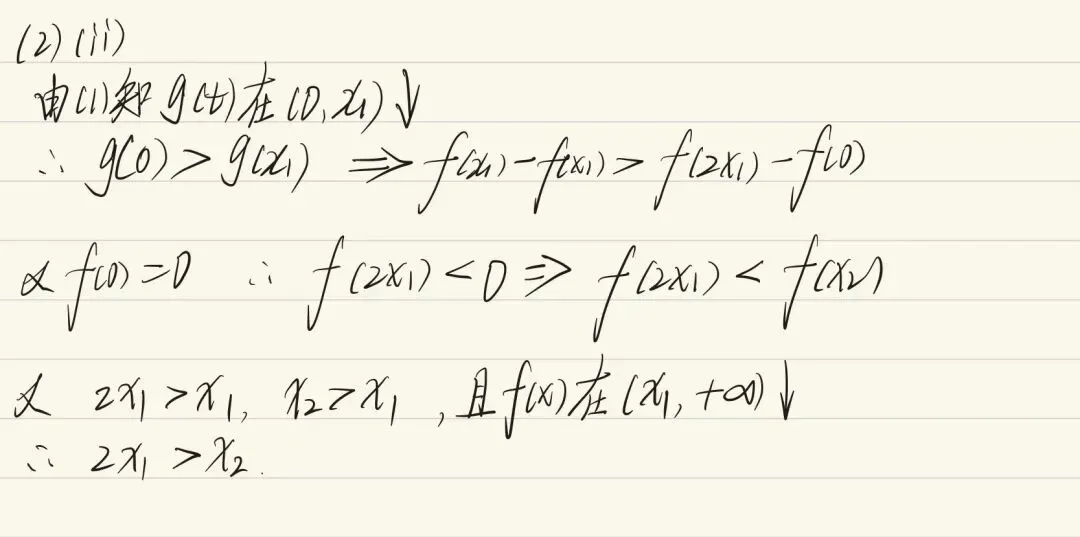 (2)(ii)
由(1)知 g(t)在(0,x₁)↓
∴ g(0)>g(x₁) ⇒ f(x₁)-f(x₁)>f(2x₁)-f(0)
又 f(0)=0 ∴ f(2x₁)<0 ⇒ f(2x₁)<f(x₂)
又 2x₁>x₁, x₂>x₁, 且f(x)在(x₁,+∞)↓
∴ 2x₁>x₂.